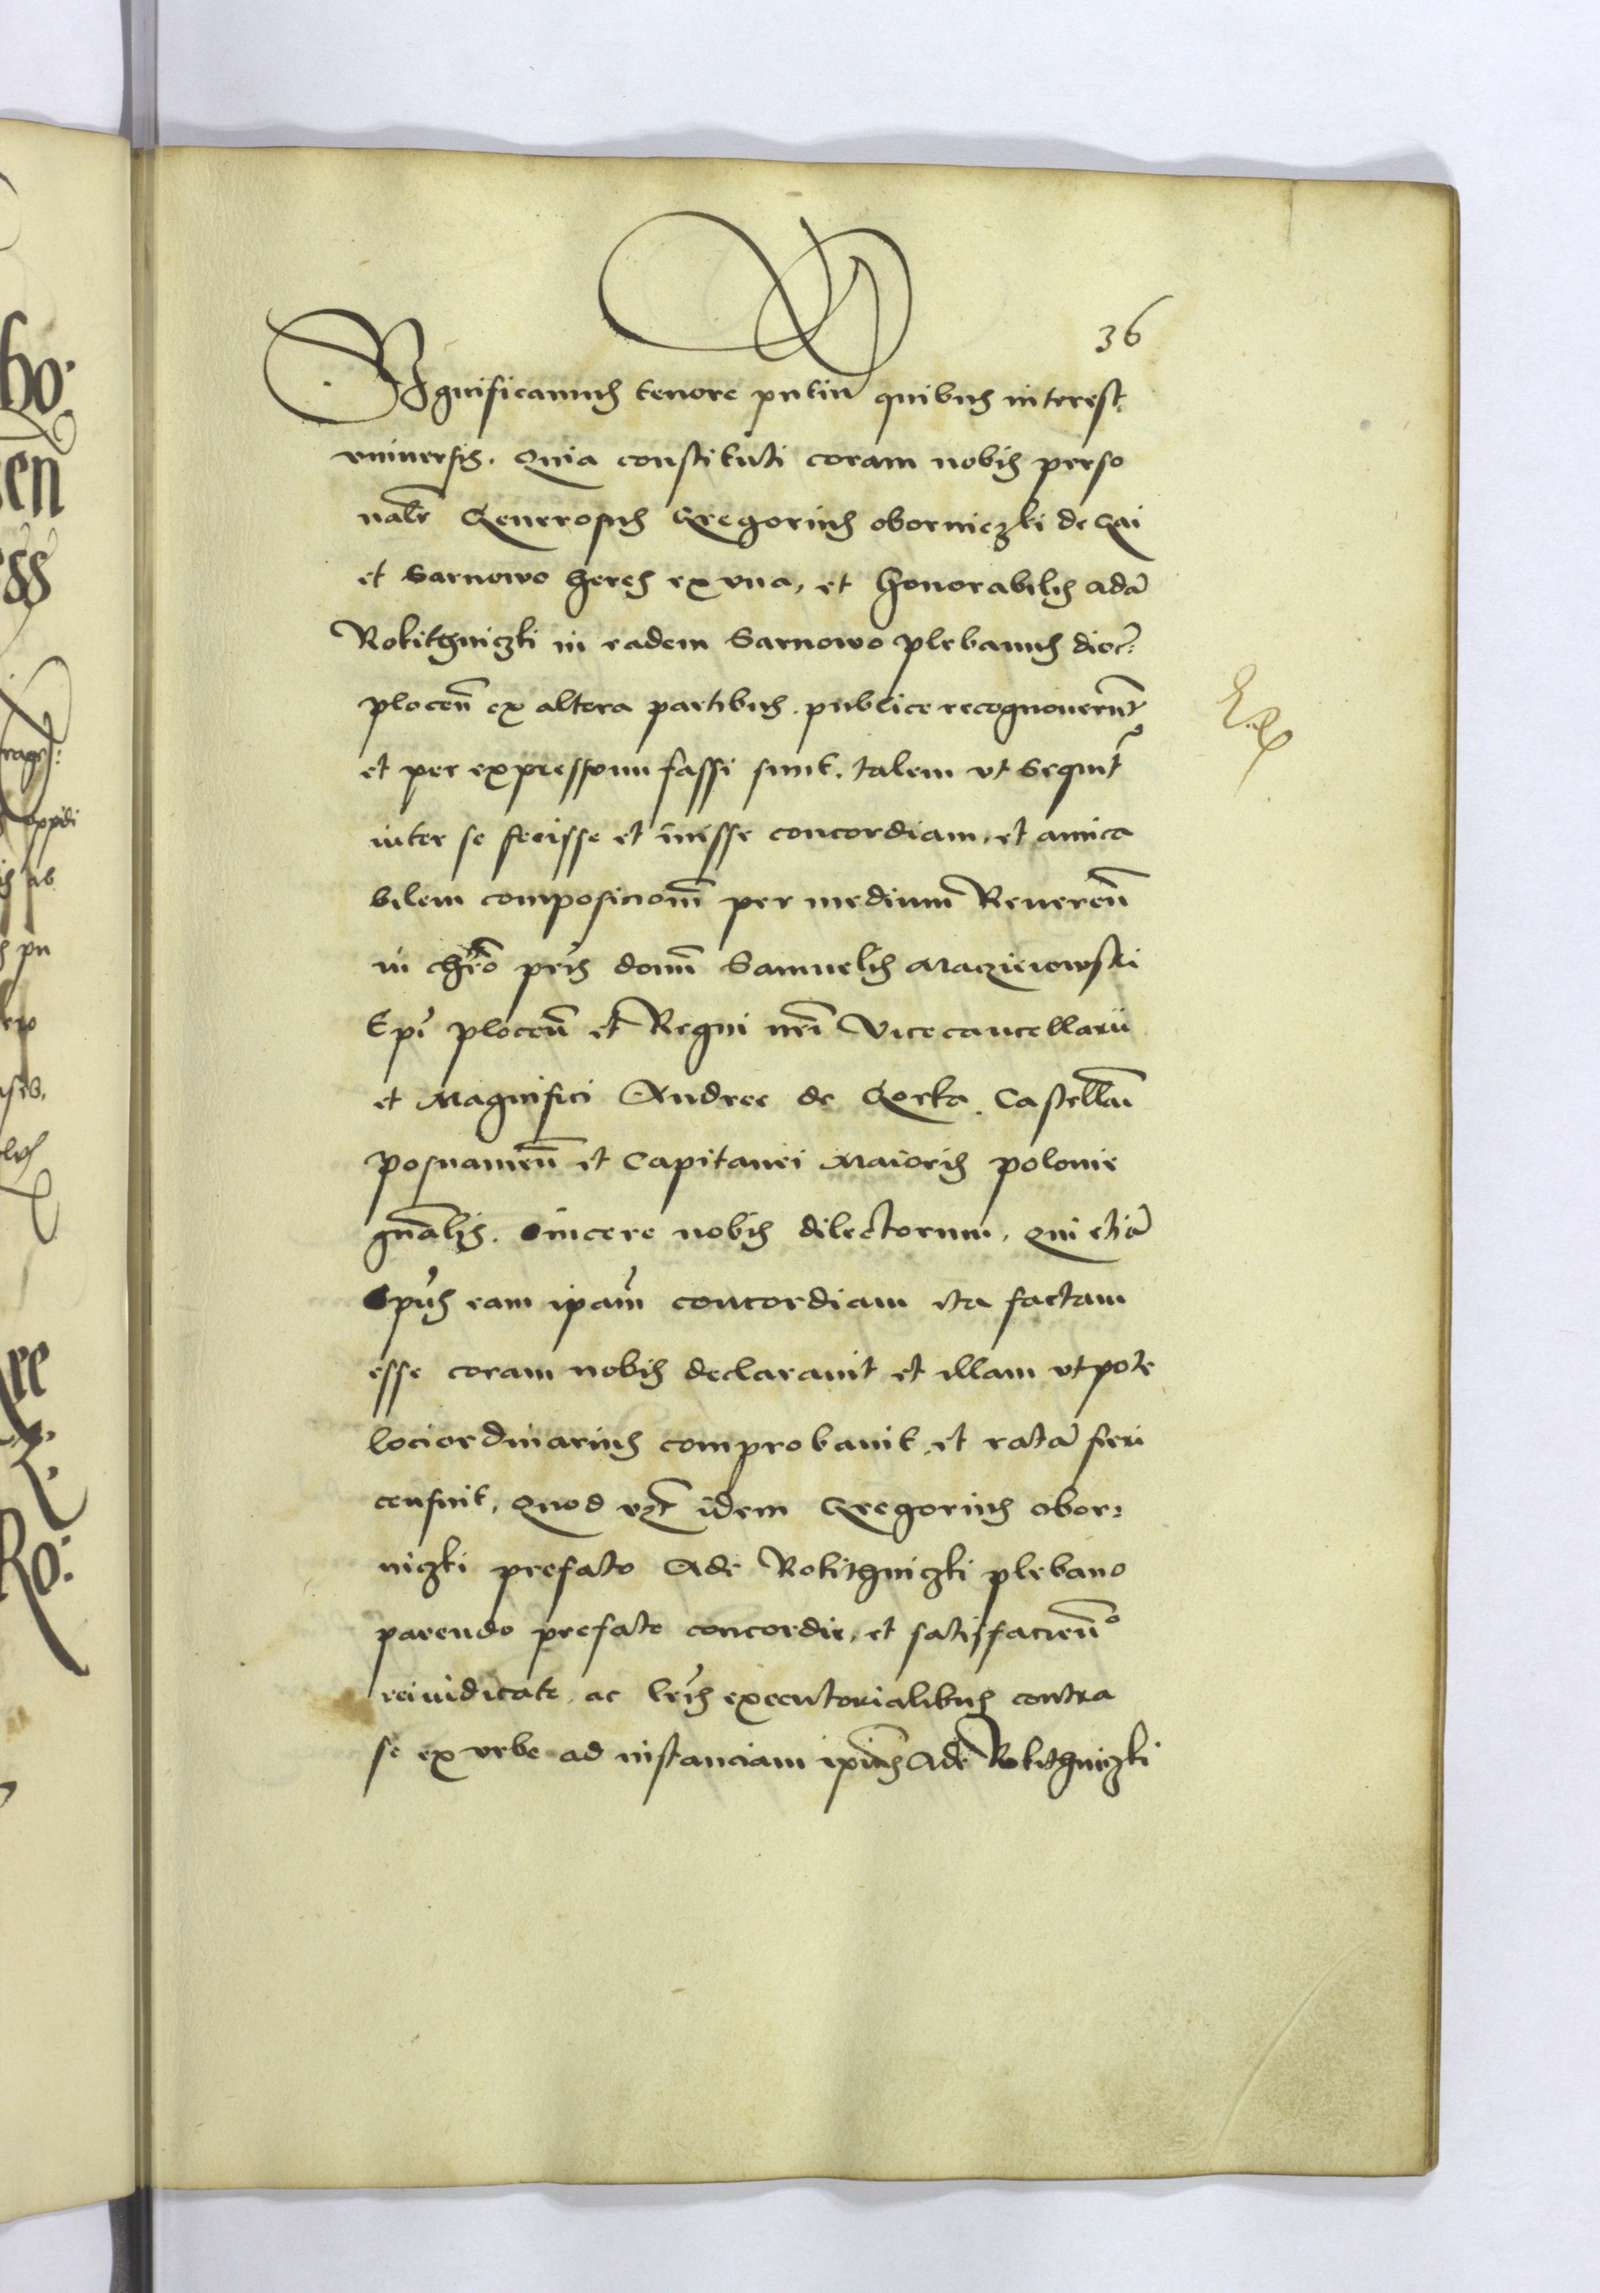 36
Significamus tenore pntiu quibus interest
vniversis. Quia constituti coram nobis perso
nalr Generosus Gregorius oborniczki de Gai
et Sarnowo heres ex vna, et honorabilis adã
Rokithniczki in eadem Sarnowo plebanus dioc:
plocen ex altera partibus. publice recognouerunt
et per expressum fassi sunt. talem vt sequit
inter se fecisse et inisse concordiam, et amica
bilem composicionem per medium Reueren
in chro pris domi Samuelis Macziejowski
Epi plocen et Regni nri Vicecancellarii
et Magnifici Andree de Gorka. Castellani
posnanien et Capitanei Maioris polonie
gnalis. Sincere nobis dilectorum, qui etiã
Epus eam ipam concordiam ita factam
esse coram nobis declarauit et illam vtpote
lociordinarius comprobauit, et ratã fieri
censuit, Quod vzt idem Gregorius obor:
niczki prefato Ade Rokithniczki plebano
parendo prefate concordie, et satisfacien°
reiudicate. ac lris executorialibus contra
se ex vrbe ad instanciam ipius Ade Rokithniczki